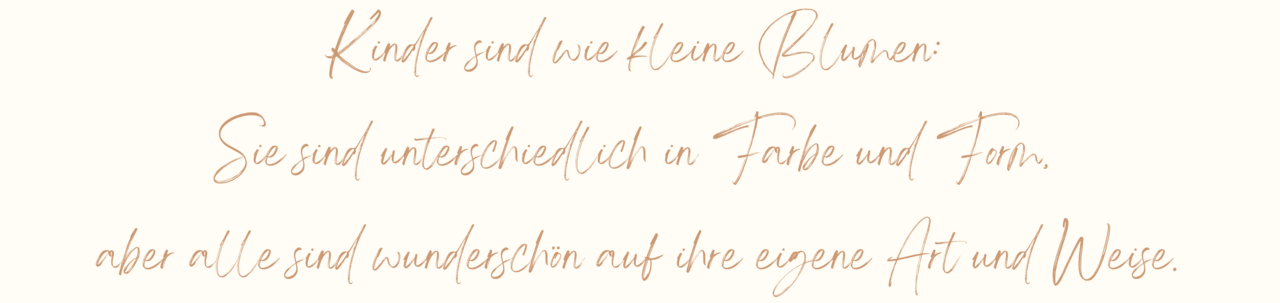 Kinder sind wie kleine Blumen:
Sie sind unterschiedlich in Farbe und Form,
aber alle sind wunderschön auf ihre eigene Art und Weise.